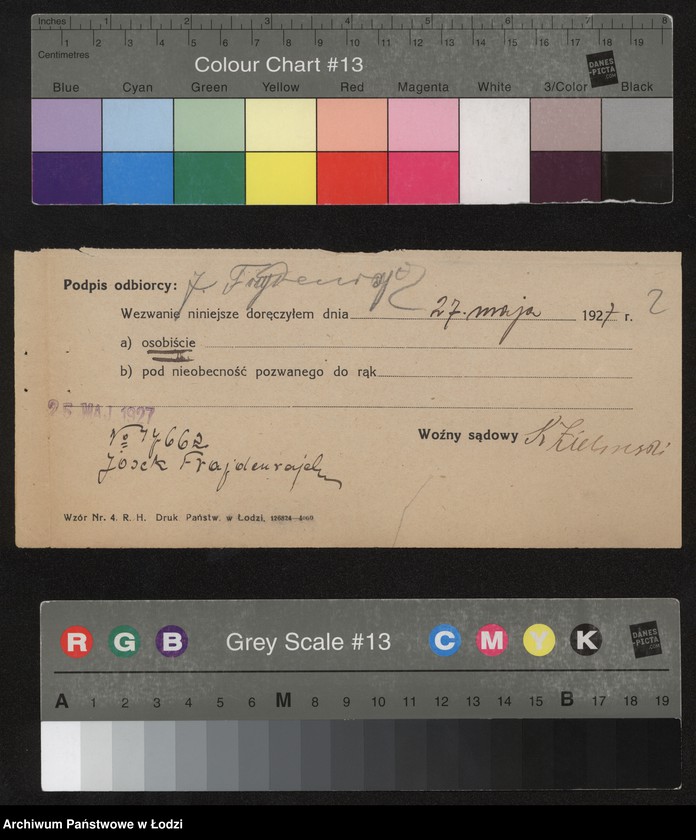 Inches 1 2 3 4 5 6 7 8
1 2 3 4 5 6 7 8 9 10 11 12 13 14 15 16 17 18 19
Centimetres
Colour Chart #13
DANES
-PICTA
.COM
Blue Cyan Green Yellow Red Magenta White 3/Color Black
Podpis odbiorcy:
Wezwanie niniejsze doręczyłem dnia 27. maja 1927 r. 2
a) osobiście
b) pod nieobecność pozwanego do rąk
25 MAJ 1927
Woźny sądowy K Zieliński
№ 17662
Josek Frajdenrajch
Wzór Nr. 4. R. H. Druk Państw. w Łodzi.
R G B Grey Scale #13 C M Y K
DANES
-PICTA
.COM
A 1 2 3 4 5 6 M 8 9 10 11 12 13 14 15 B 17 18 19
Archiwum Państwowe w Łodzi